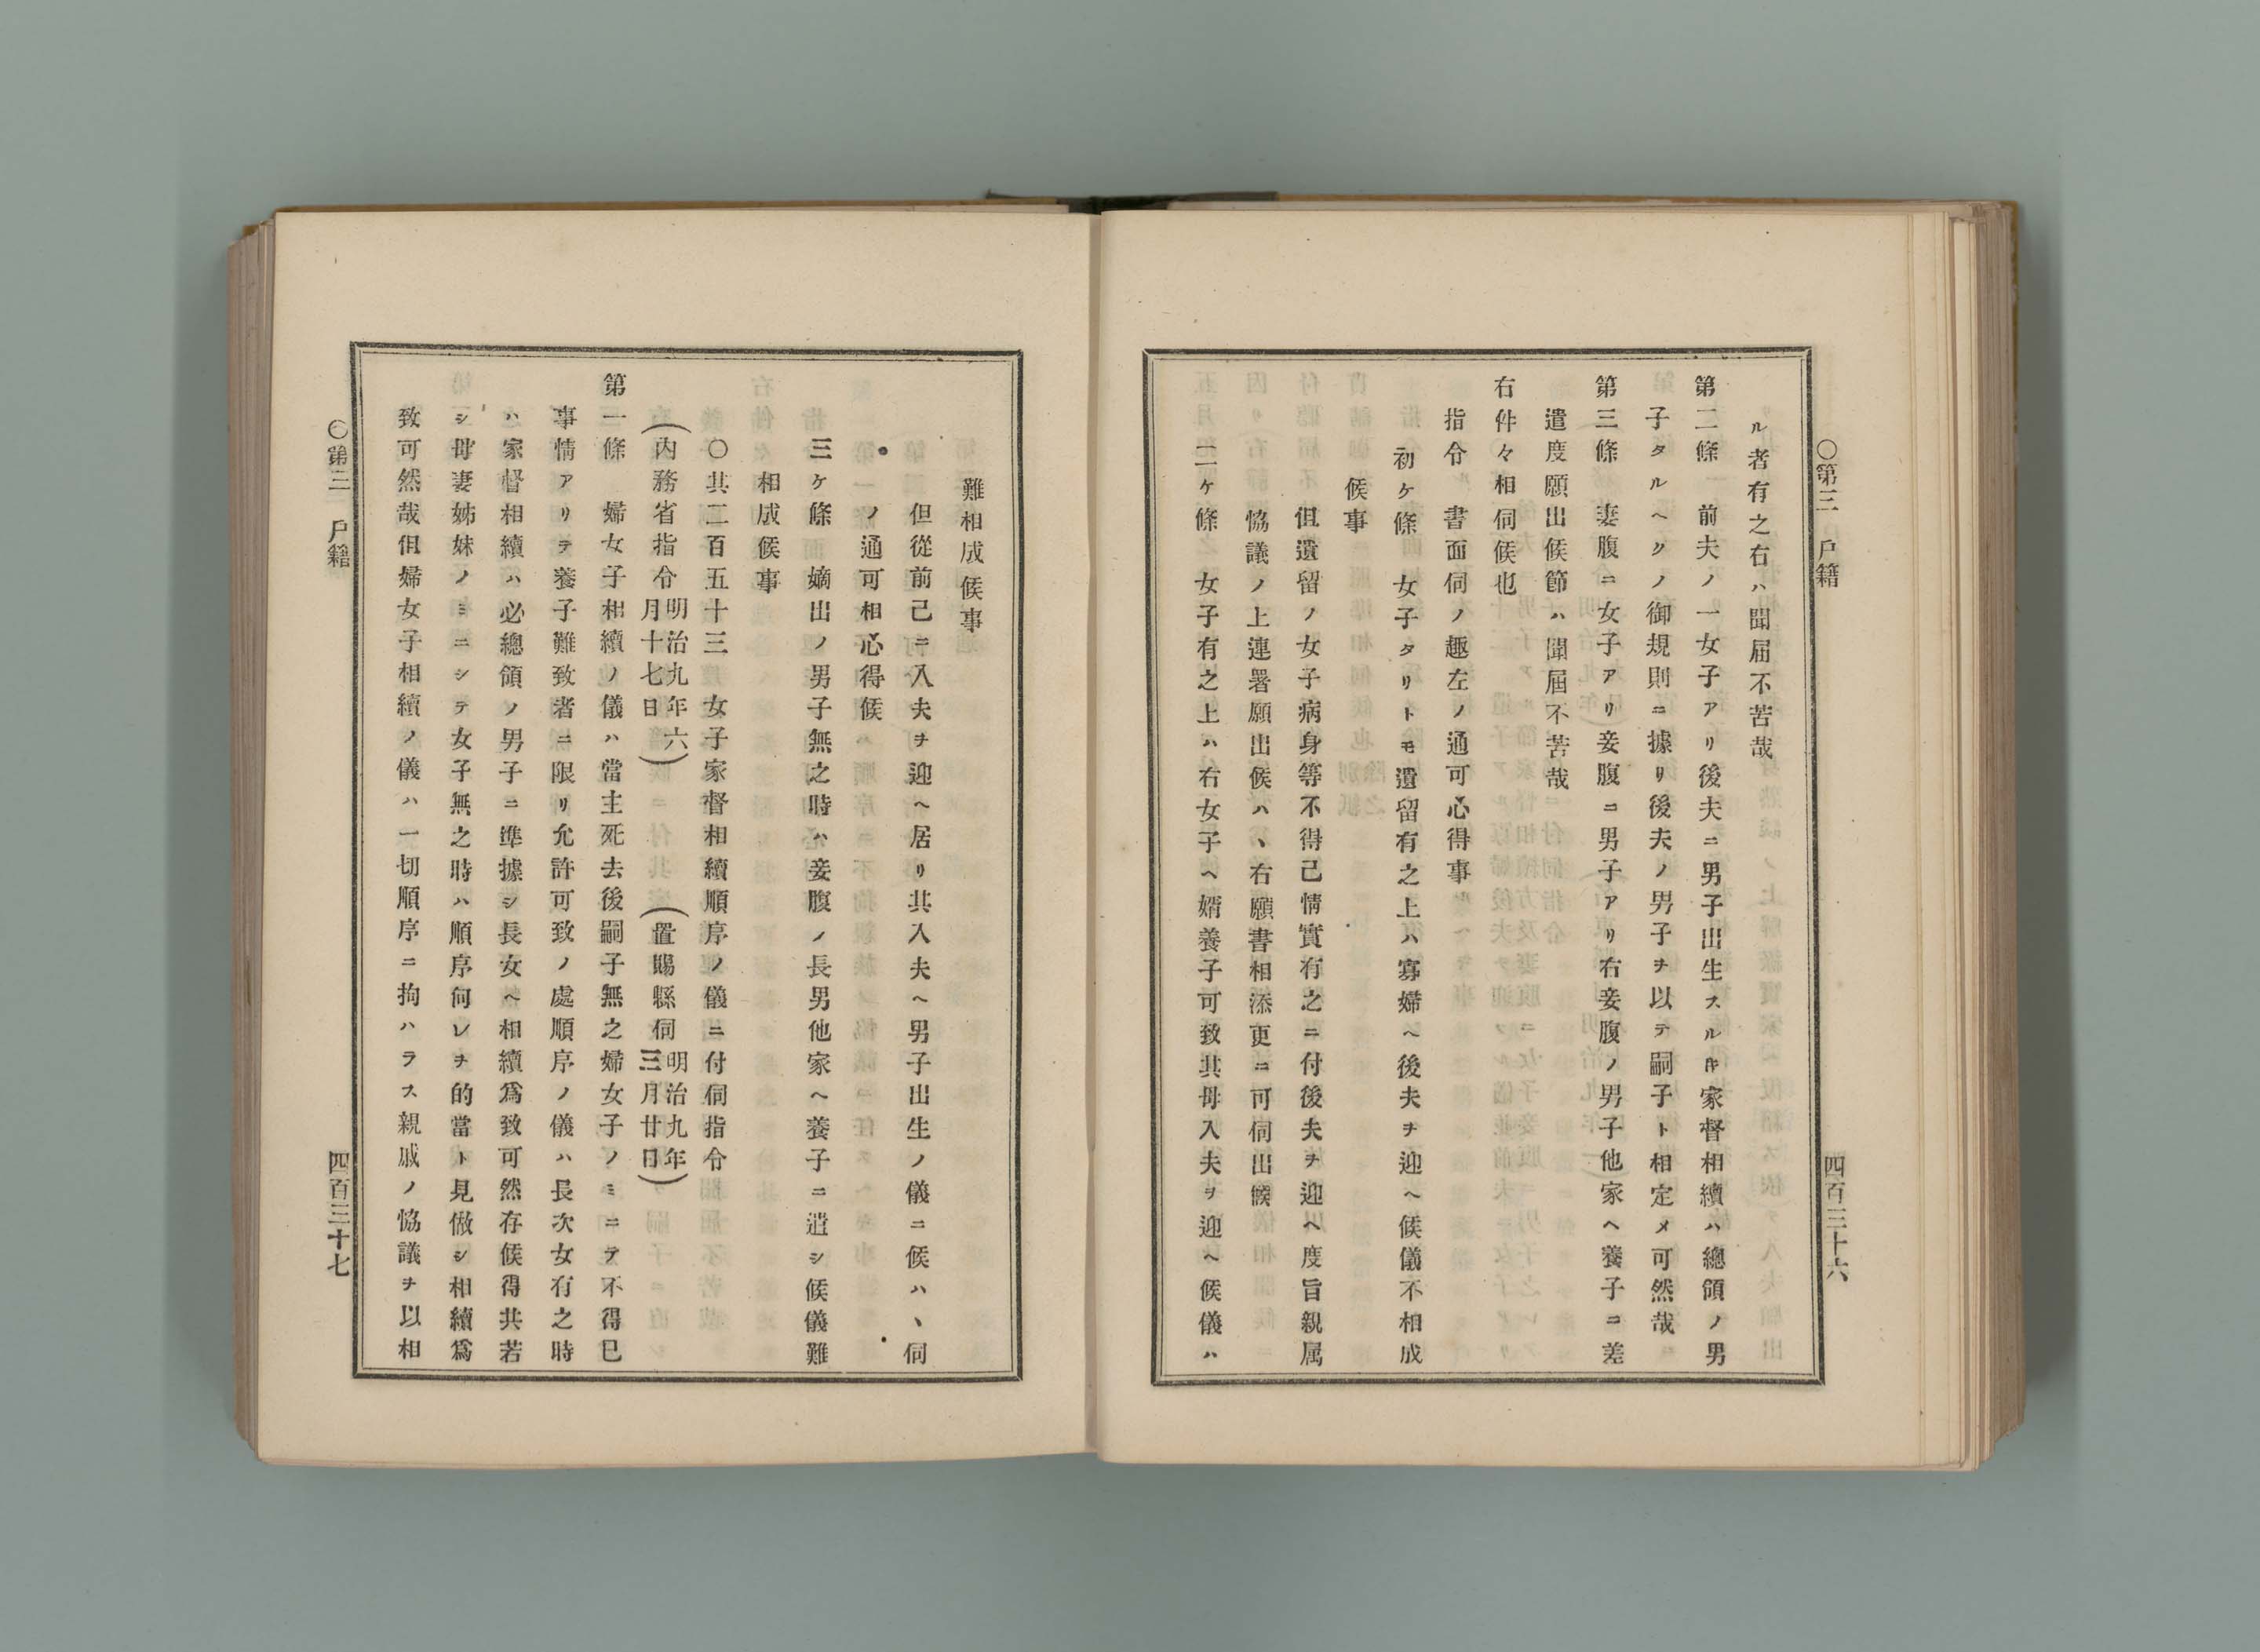 ○第三 戶籍 四百三十六
ル者有之右ハ聞屆不苦哉
第二條 前夫ノ一女子アリ後夫ニ男子出生スルキ家督相續ハ總領ノ男
子タルヘクノ御規則ニ據リ後夫ノ男子ヲ以テ嗣子ト相定メ可然哉
第三條 妻腹ニ女子アリ妾腹ニ男子アリ右妾腹ノ男子他家ヘ養子ニ差
遣度願出候節ハ聞屆不苦哉
右件々相伺候也
指令 書面伺ノ趣左ノ通可心得事
初ケ條 女子タリトモ遺留有之上ハ寡婦ヘ後夫ヲ迎ヘ候儀不相成
候事
但遺留ノ女子病身等不得己情實有之ニ付後夫ヲ迎ヘ度旨親属
恊議ノ上連署願出候ハヽ右願書相添更ニ可伺出候
二ケ條 女子有之上ハ右女子ヘ婿養子可致其母入夫ヲ迎ヘ候儀ハ
難相成候事
但從前己ニ入夫ヲ迎ヘ居リ其入夫ヘ男子出生ノ儀ニ候ハヽ伺
ノ通可相心得候
三ケ條 嫡出ノ男子無之時ハ妾腹ノ長男他家ヘ養子ニ遣シ候儀難
相成候事
○其二百五十三 女子家督相續順序ノ儀ニ付伺指令
(內務省指令 明治九年六月十七日) (置賜縣伺 明治九年三月廿日)
第一條 婦女子相續ノ儀ハ當主死去後嗣子無之婦女子ノミニテ不得巳
事情アリテ養子難致者ニ限リ允許可致ノ處順序ノ儀ハ長次女有之時
ハ家督相續ハ必總領ノ男子ニ準據シ長女ヘ相續爲致可然存候得共若
シ母妻姊妹ノミニシテ女子無之時ハ順序何レヲ的當ト見做シ相續爲
致可然哉但婦女子相續ノ儀ハ一切順序ニ拘ハラス親戚ノ恊議ヲ以相
○第三 戶籍 四百三十七